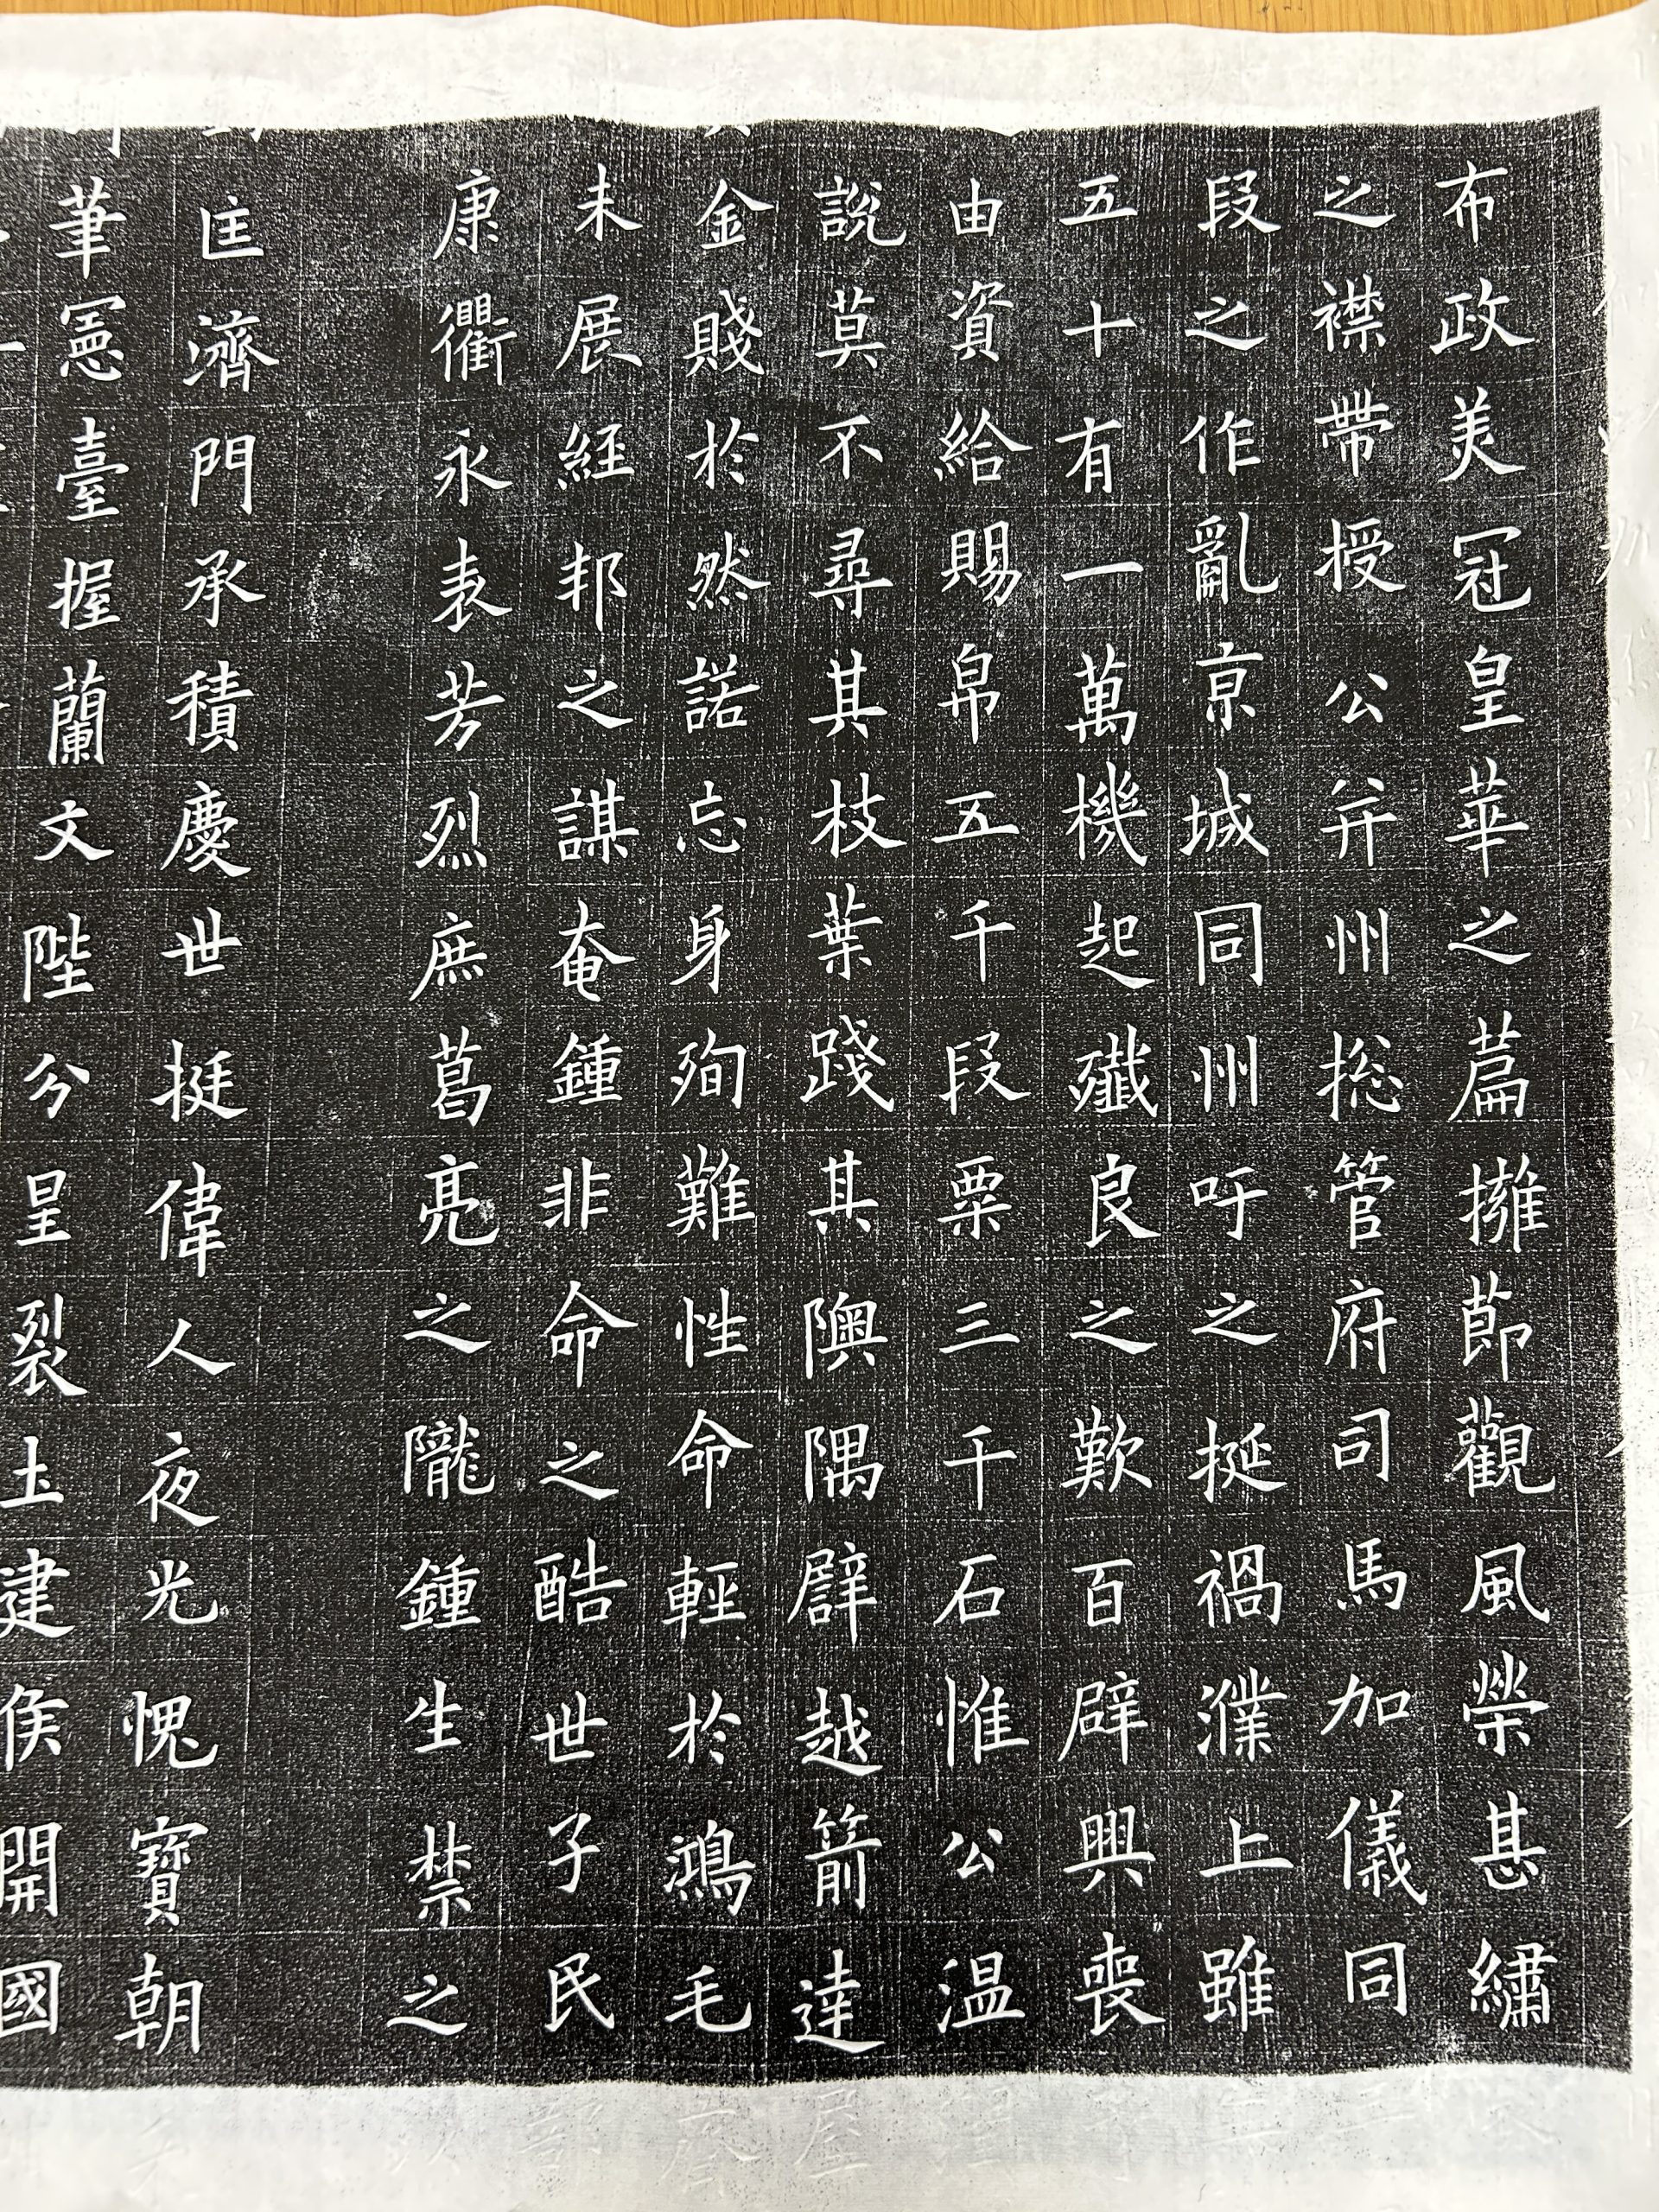 布政美冠皇華之篇擁節觀風榮甚繡
之襟帶授公并州総管府司馬加儀同
段之作亂京城同州吁之挻禍濮上雖
五十有一萬機起殲良之歎百辟興喪
由資給賜帛五千段粟三千石惟公温
說莫不尋其枝葉踐其隩隅辟越箭達
金賤於然諾忘身殉難性命輕於鴻毛
未展経邦之謀奄鍾非命之酷世子民
康衢永表芳烈庶葛亮之隴鍾生禁之
匡濟門承積慶世挺偉人夜光愧寶朝
筆憲臺握蘭文陛分星裂土建侯開國